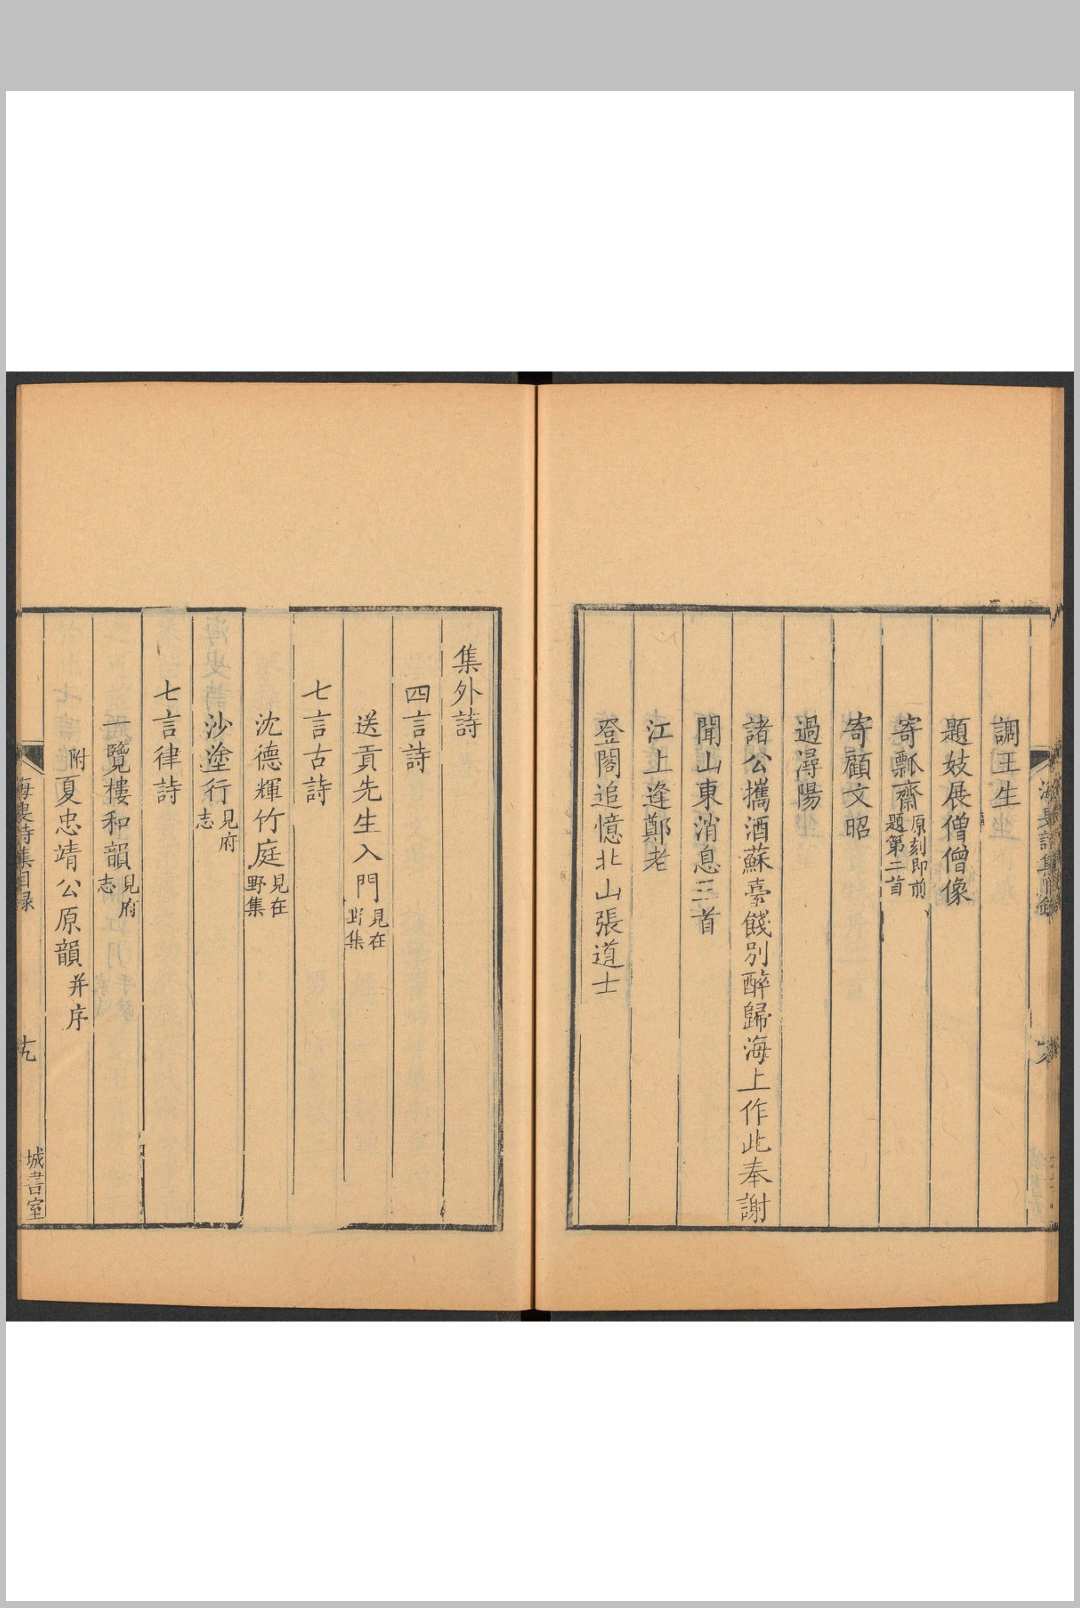 調王生
題妓展僧僧像
寄瓢齋原刻即前題第二首
寄顧文昭
過潯陽
諸公攜酒蘇臺餞別醉歸海上作此奉謝
聞山東消息三首
江上逢鄭老
登閣追憶北山張道士
集外詩
四言詩
送貢先生入門見在野集
七言古詩
沈德輝竹庭見在野集
沙塗行見府志
七言律詩
一覽樓和韻見府志
附夏忠靖公原韻并序
海叟詩集目錄
城書室